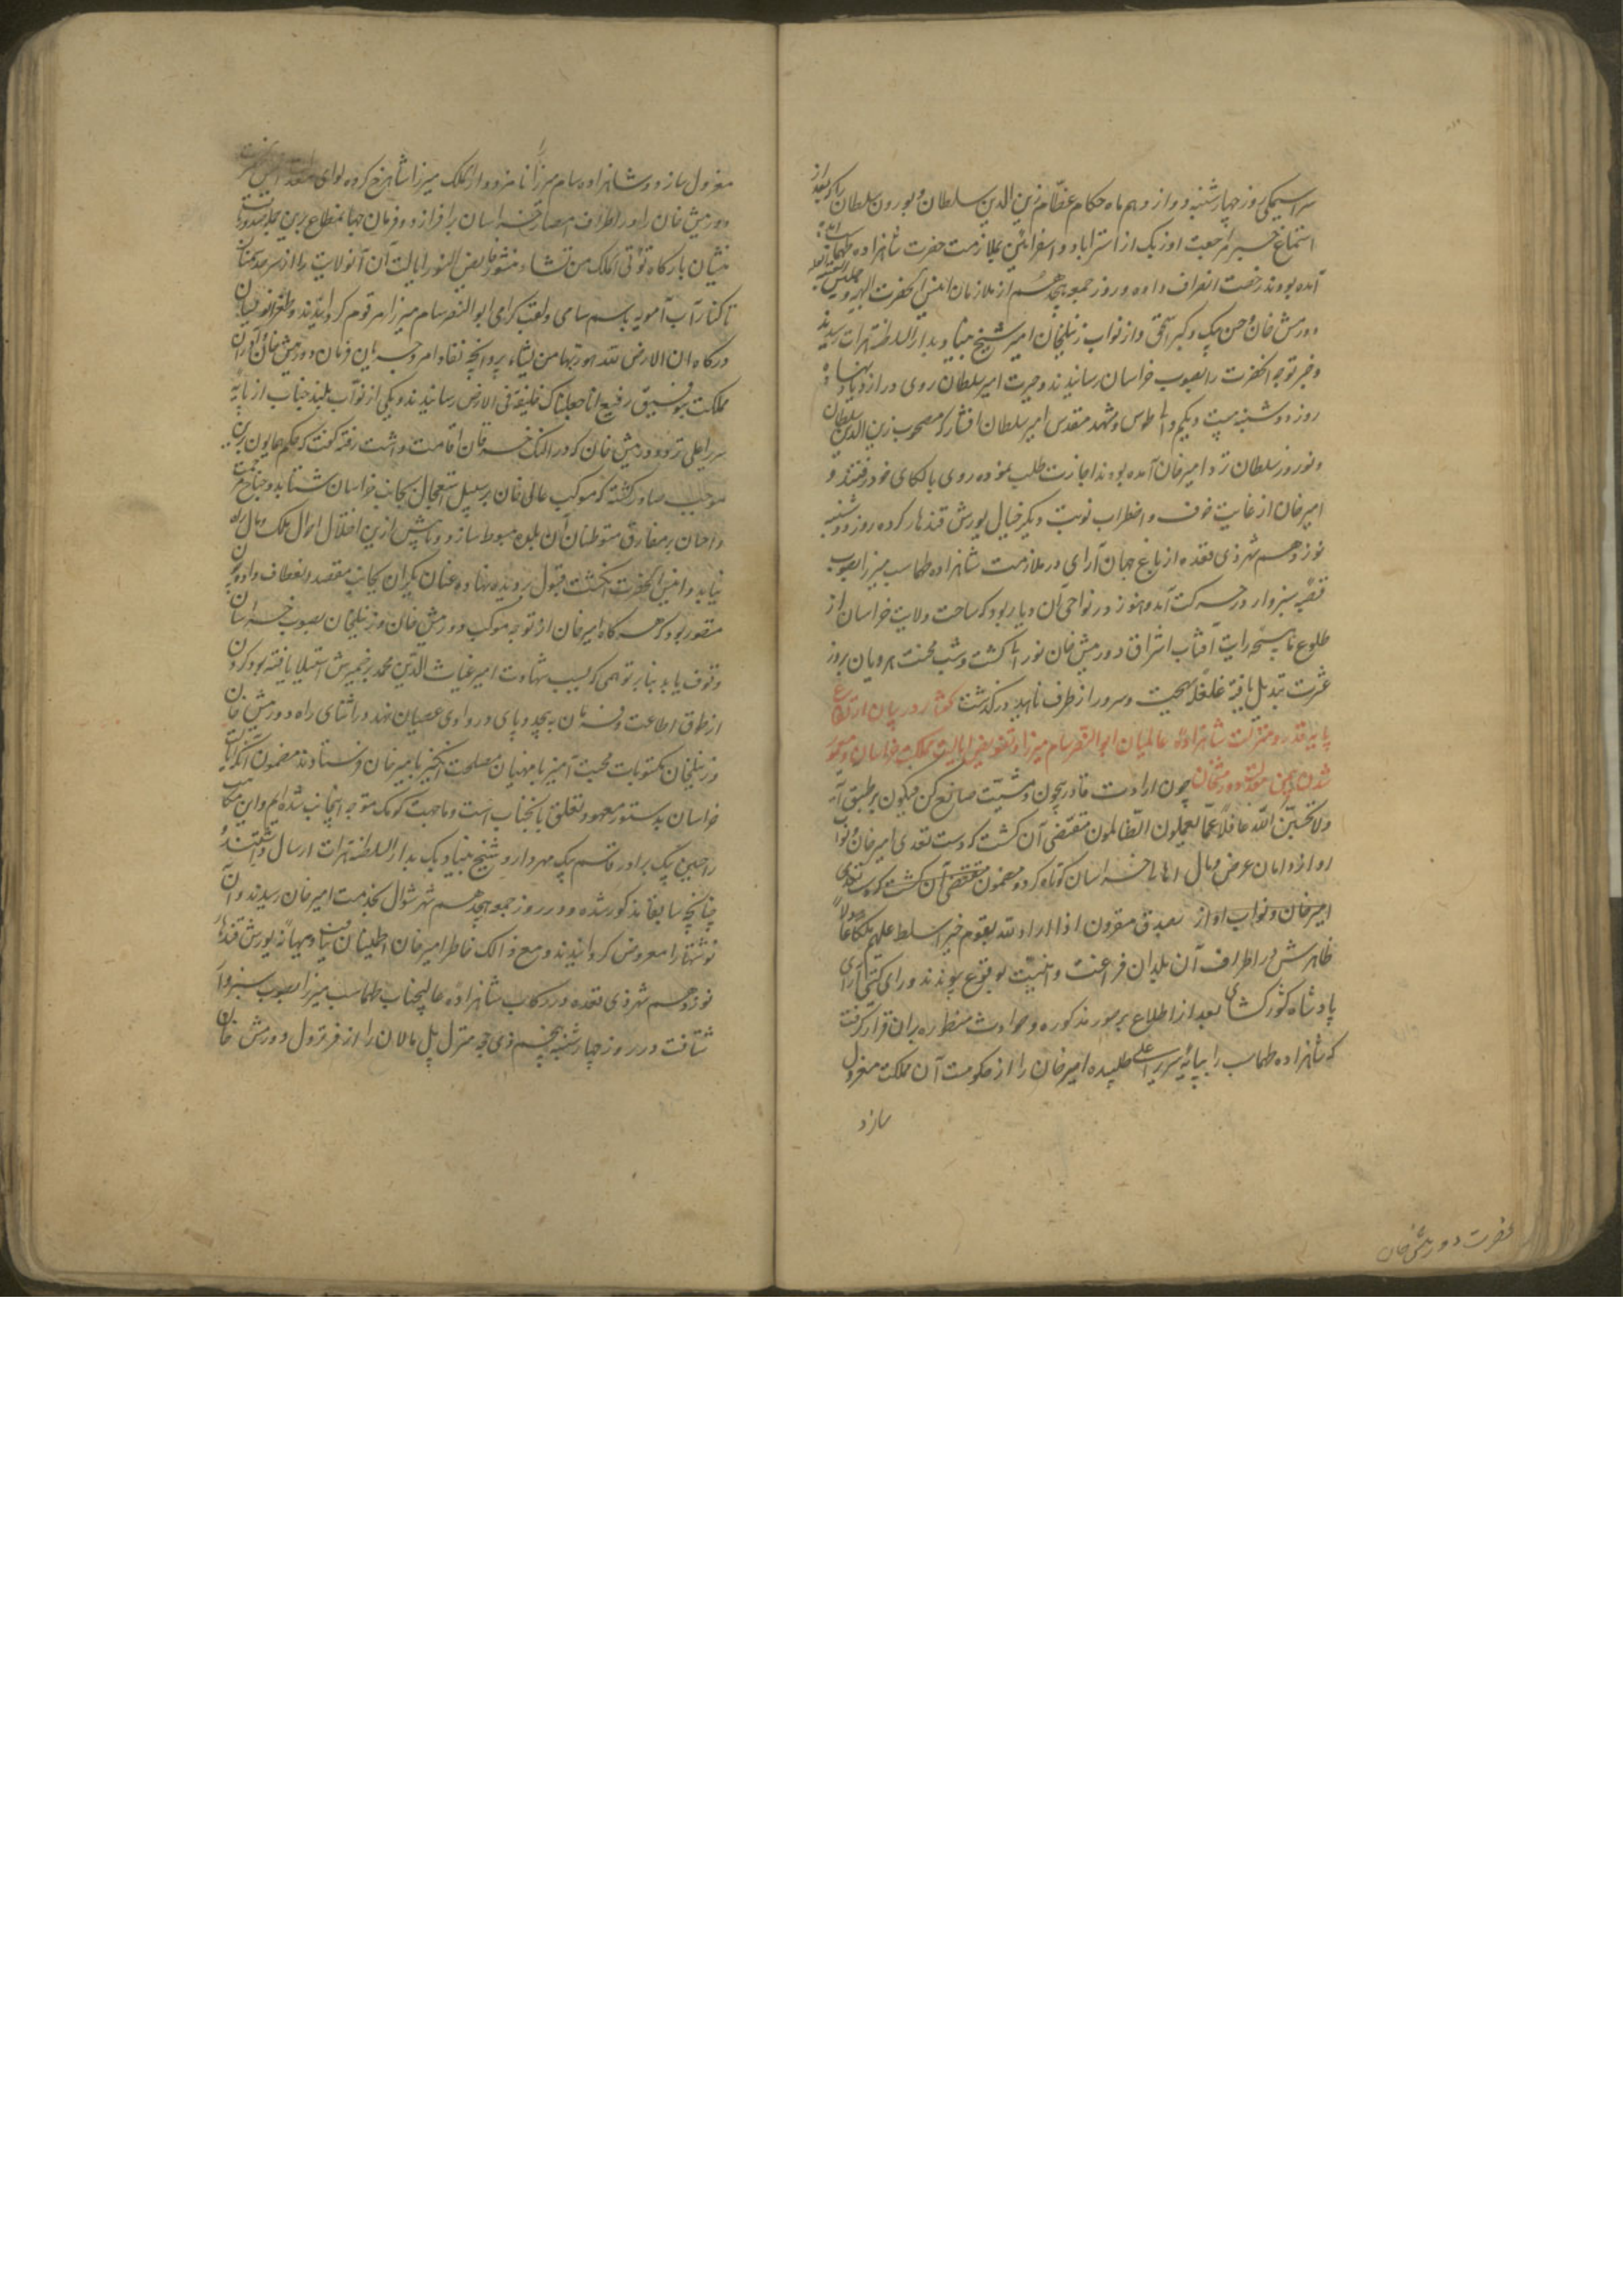 سراسیمگی روز چهارشنبه دوازدهم ماه حکام عظام زین الدین سلطان و بورون سلطان را که بعد از
استماع خبر مراجعت اوزبک از استراباد و اسفراین بملازمت حضرت شاهزاده طهماسب
آمده بودند رخصت انصراف داده و روز جمعه هجدهم از ملازمان انیس الحضرت
دورمش خان و حسن بیک و از نواب زینلخان امیر شیخ بدار السلطنه هرات رسیدند
و خبر توجه آنحضرت را بصوب خراسان رسانیدند و حیرت امیر سلطان روی در ازدیاد نهاده
روز دوشنبه بیست و یکم والی طوس و مشهد مقدس امیر سلطان افشار که مصحوب زین الدین سلطان
و نوروز سلطان نزد امیر خان آمده بودند اجازت طلب نموده روی بالکای خود رفتند و
امیر خان از غایت خوف و اضطراب نوبت دیگر خیال یورش قندهار کرده روز دوشنبه
نوزدهم شهر ذی قعده از باغ جهان آرای در ملازمت شاهزاده طهماسب میرزا بصوب
قصبه سبزوار در حرکت آمد و هنوز در نواحی آن دیار بود که ساحت ولایت خراسان از
طلوع ماهیچه رایت آفتاب اشراق دورمش خان نورانی گشت و شب محنت هرویان بروز
عشرت تبدیل یافته غلغله بهجت و سرور از طرف ناهید درگذشت گفتار در بیان ارتفاع
پایه قدر و منزلت شاهزاده عالمیان ابو النصر سام میرزا و تفویض ایالت مملکت خراسان و معمور
شدن بیمن معدلت دورمشخان چون ارادت قادر بیچون و مشیت صانع کن فیکون بر طبق آیه
ولا تحسبن الله غافلا عما یعملون الظالمون مقتضی آن گشت که دست تعدی امیر خان و نواب
او از دامان عرض و مال اهالی خراسان کوتاه کرد و مضمون مقتضی آن گشت که دست تعدی
امیر خان و نواب او از بصدق مقرون اذا اراد الله بقوم خیرا سلط علیهم ملکا عادلا
ظاهرش در اطراف آن بلدان فراغت و امنیت بوقوع پیوندد و رای گیتی آرای
پادشاه کشورگشای بعد از اطلاع بر صور مذکوره و حوادث مسطوره بران قرار گرفت
که شاهزاده طهماسب را بپایه سریر اعلی طلبیده امیر خان را از حکومت آن مملکت معزول
سازد
حضرت دورمش خان
معزول سازد و شاهزاده سام میرزا را نامزد دار الملک میرزا شاهرخ کرده لوای
دورمش خان را در اطراف امصار خراسان برافرازد و فرمان جهانمطاع برین جمله صدور یافت
منشیان بارگاه تؤتی الملک من تشاء منشور فایض النور ایالت آن ولایت را از سرحد سمنان
تا کنار آب آمویه باسم سامی و لقب گرامی ابو النصر سام میرزا مرقوم گردانیدند و طغرانویسان
درگاه ان الارض لله یورثها من یشاء پروانچه نفاذ امر و جریان فرمان دورمش خان را در آن
مملکت بتوقیع رفیع انا جعلناک خلیفة فی الارض رسانیدند و یکی از نواب بلند جناب از پایه
سریر اعلی نزد دورمش خان که در النک خرقان اقامت داشت رفته گفت که حکم همایون برین
موجب صادر گشته که موکب عالی خان بر سبیل استعجال بجانب خراسان شتابد و جناح مرحمت
و احسان بر مفارق متوطنان آن بلده مبسوط سازد و تا بیش ازین اختلال احوال ملک و مال راه
نیابد و انیس الحضرت انگشت قبول بر دیده نهاده عنان یکران بجانب مقصد انعطاف داد و چون
متصور بود که هرگاه امیر خان از توجه موکب دورمش خان و زینلخان بصوب خراسان
وقوف یابد بنابر توهمی که بسبب شهادت امیر غیاث الدین محمد بر ضمیرش استیلا یافته بود گردن
از طوق اطاعت و فرمان به پیچد و پای در وادی عصیان نهد در اثنای راه دورمش خان
و زینلخان مکتوبات محبت آمیز با منهیان مصلحت انگیز بامیر خان فرستادند مضمون آنکه ایالت
خراسان بدستور معهود تعلق بآنجناب است و ما جهت کومک متوجه آنجانب شده ایم و این مکاتیب
را حسن بیک برادر قاسم بیک مهردار و شیخ بیک بدار السلطنه هرات ارسال داشتند و
چنانچه سابقا مذکور شده در روز جمعه هجدهم شهر شوال بخدمت امیر خان رسیدند و آن
نوشتها را معروض گردانیدند و مع ذالک خاطر امیر خان اطمینان نیافت و ببهانه یورش قندهار
نوزدهم شهر ذی قعده در رکاب شاهزاده عالیجناب طهماسب میرزا بصوب سبزوار
شتافت و در روز چهارشنبه پنجم ذی حجه منزل پل مالان را از فر نزول دورمش خان